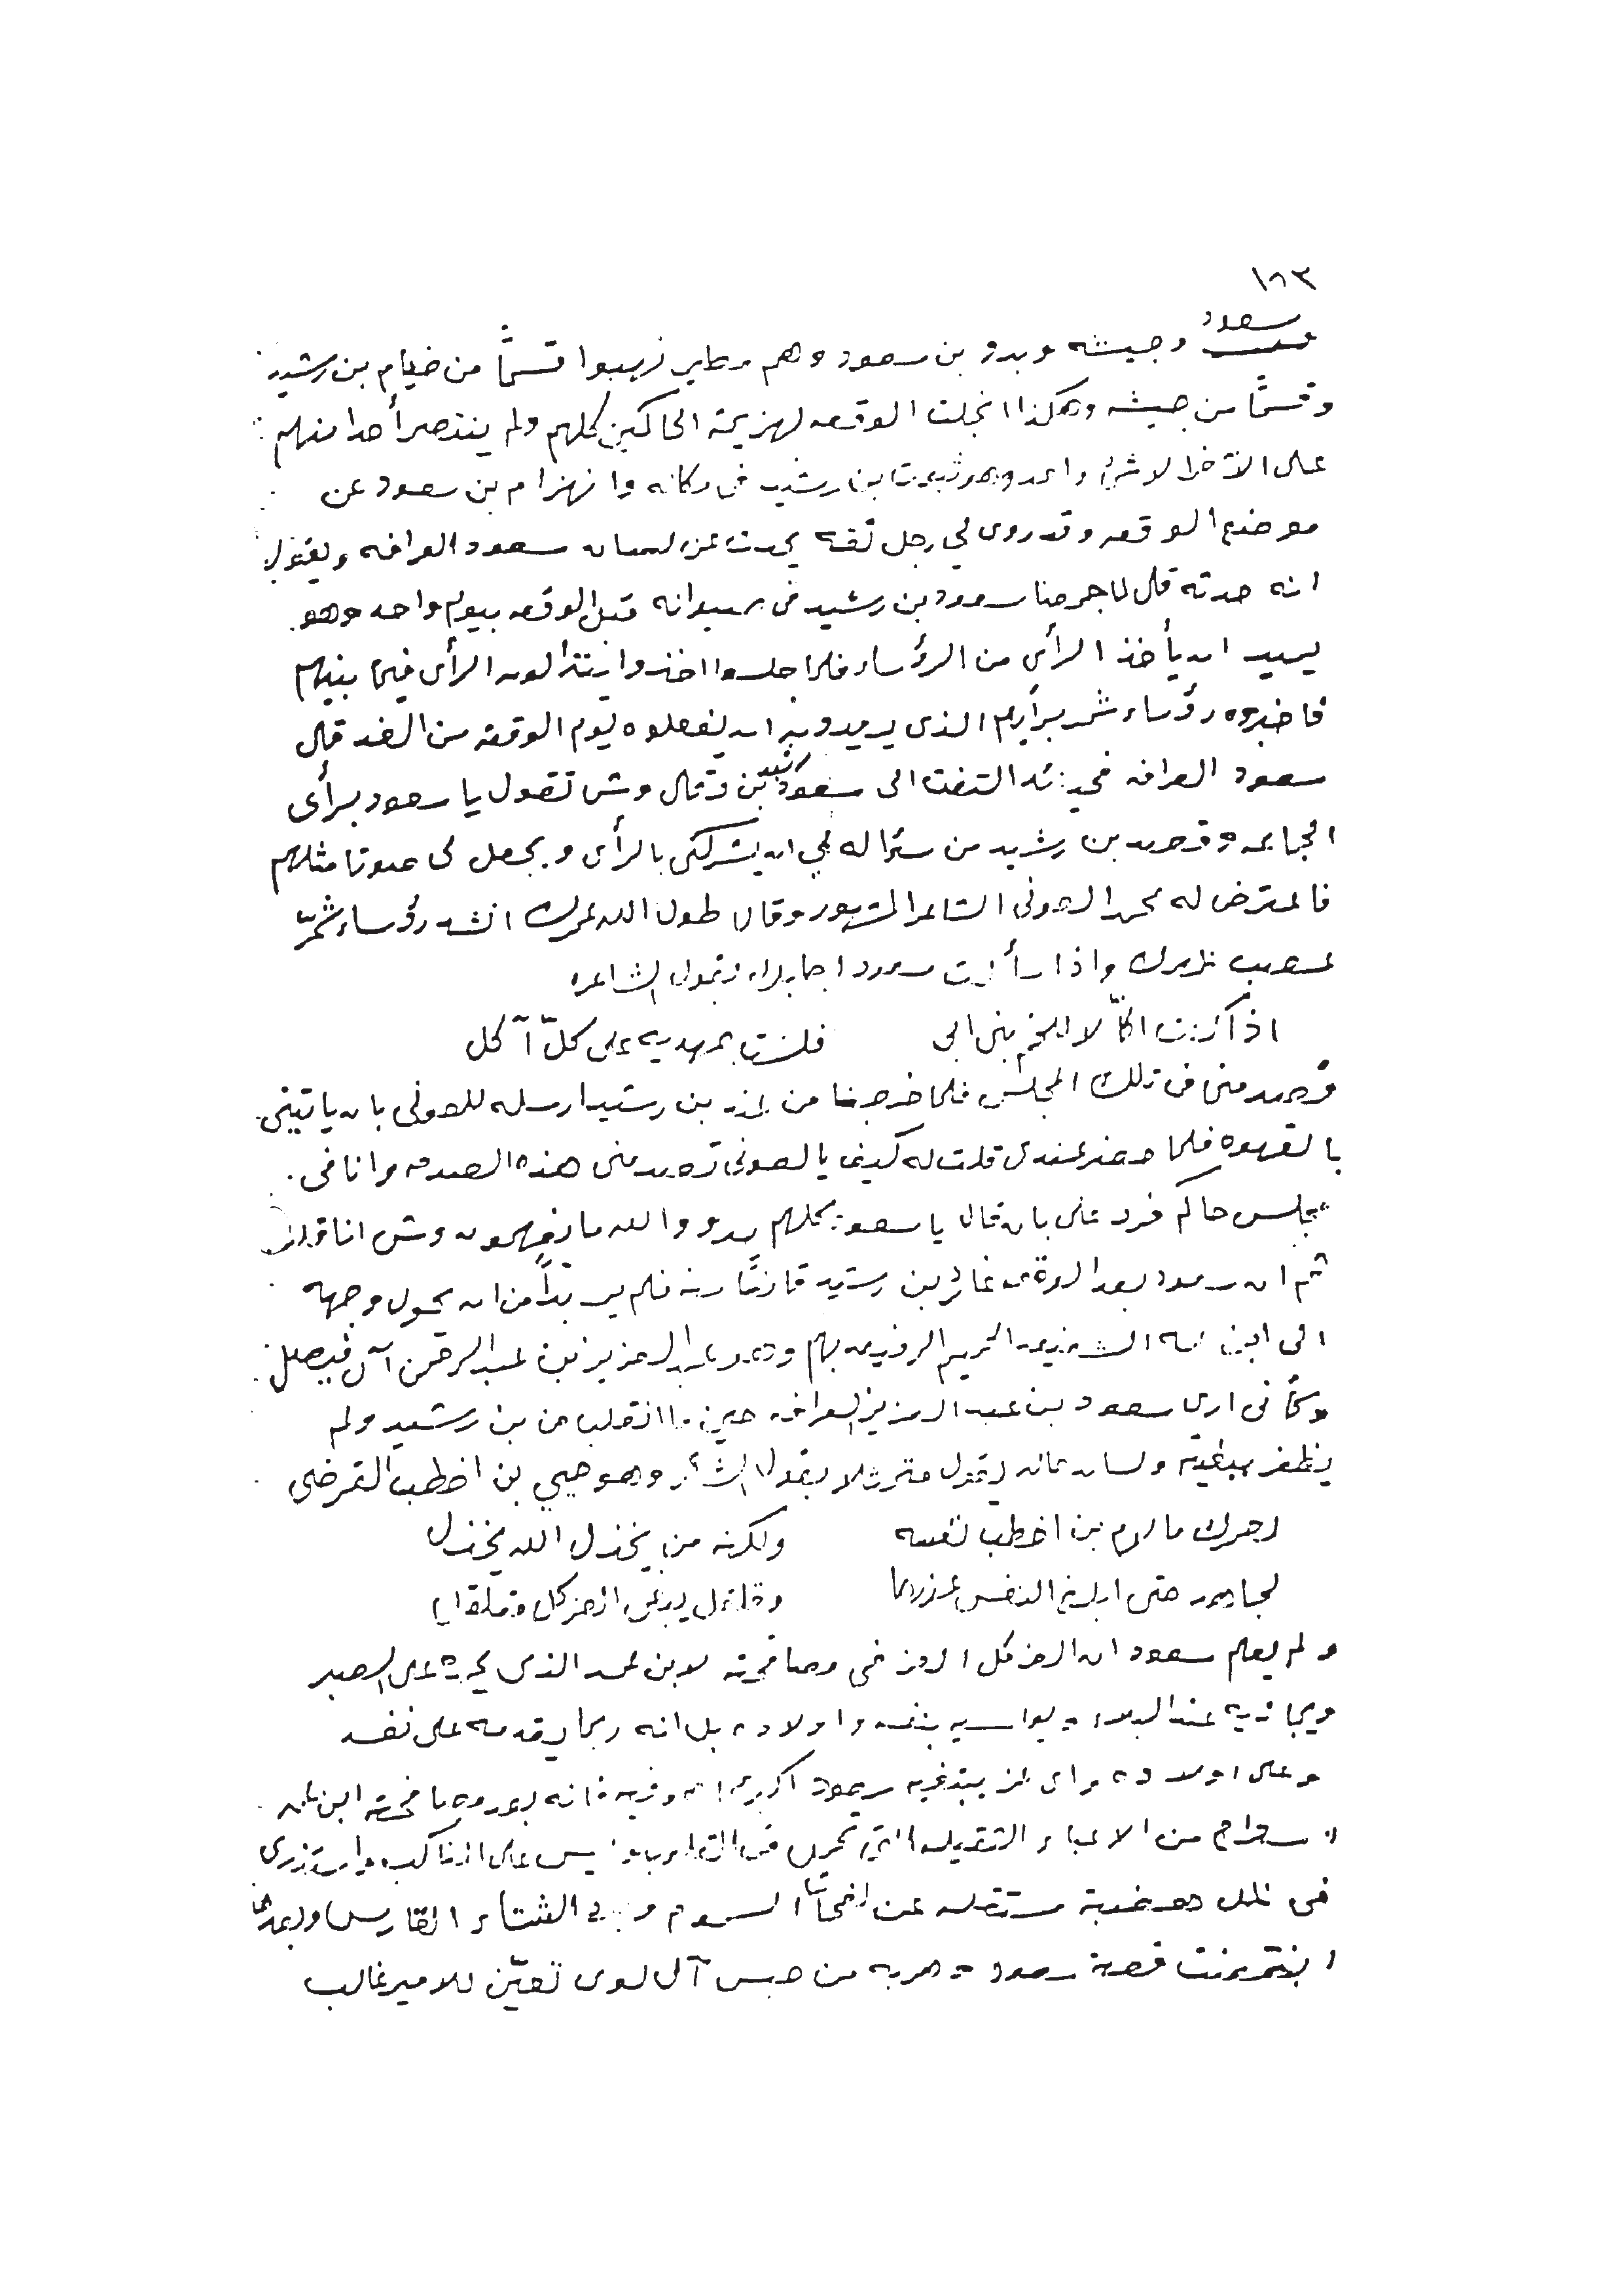 ١٨٣
سعود
وجيشه وبدو بن سعود وهم مطير نهبوا قسماً من خيام بن رشيد
وقسماً من جيشه وهكذا انجلت الوقعه لهزيمة الحاكمين كلهم ولم ينتصر أحدا منهم
على الآخر الا شئ واحد وهو ثبوت بن رشيد في مكانه وانهزام بن سعود عن
موضع الوقعه وقد روى لي رجل ثقه يحدث عن لسان سعود العرافه ويقول
انه حدثه قال لما جمعنا سعود بن رشيد في صيوانه قبل الوقعه بيوم واحد وهو
يريد ان يأخذ الرأى من الرؤساء فلما جلسوا اخذوا يتداولون الرأى فيما بينهم
فاخبروه رؤساء شمر برأيهم الذى يريدون ان يفعلوه يوم الوقعه من الغد قال
سعود العرافه فحينئذ التفت الى سعود بن رشيد وقال وش تقول يا سعود برأى
الجماعه وقصد بن رشيد من سئواله لي ان يشركنى بالرأى ويجعل لى صوتا مثلهم
فاعترض له محمد العونى الشاعر المشهور وقال طول الله عمرك انشد رؤساء شمّر
عصيب ظهرك واذا سألت سعود اجابك بقول الشاعر
اذا كنت اكّالا للحم بنى ابى فلست بمهديه على كلّ آكل
وقصد منى فى تلك المجلس فلما خرجنا من عند بن رشيد ارسله للعونى بان ياتينى
بالقهوه فلما حضر عندى قلت له كيف يا لعونى تقصد منى هذه الصدمه وانا فى
مجلس حاكم فرد على بان قال يا سعود كلهم بدو والله ما يفهمون وش انا قايل
ثم ان سعود بعد الوقعه غادر بن رشيد قانتا منه فلم ير بداً من ان يحول وجهه
الى ابن عمه الشفيق الكريم الرفيق بهم وهو عبدالعزيز بن عبدالرحمن آل فيصل
وكأنى ارى سعود بن عبدالعزيز العرافه حين ما انقلب من بن رشيد ولم
يظفر ببغيته ولسان حاله يقول متمثلا بقول الشاعر وهو حيي بن اخطب القرضى
لعمرك ما لام بن اخطب نفسه ولكنه من يخذل الله يخذل
لجاهد حتى ابلغ النفس عذرها وقلقل يبغى العز كل مقلقل
ولم يعلم سعود ان العز كل العز فى مصافحته لابن عمه الذى يجره على الصبر
ويجازيه عند البلاء ويواسيه بنفسه واولاده بل انه ربما يقدمه على نفسه
وعلى اولاده واى عز يبتغيه سعود اكبر من فانه بعد مصافحته ابن عمه
استراح من الاعباء الثقيله التى تحمل فى القلوب وليس على المناكب واستذرى
فى ظل هضبة مستظله عن لفحات السموم وعن الشتاء القارس وبعدها
انتهت قصة سعود وهربه من حبس آل لوى تعيّن للامير غالب